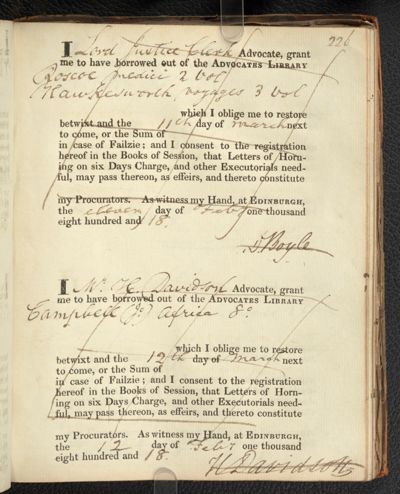 226
I Lord Justice Clerk Advocate, grant
me to have borrowed out of the ADVOCATES LIBRARY
Roscoe medici 2 vol
Hawkesworth, voyages 3 vol
which I oblige me to restore
betwixt and the 11th day of march next
to come, or the Sum of
in case of Failzie; and I consent to the registration
hereof in the Books of Session, that Letters of Horn-
ing on six Days Charge, and other Executorials need-
ful, may pass thereon, as effeirs, and thereto constitute
my Procurators. As witness my Hand, at EDINBURGH,
the eleven day of Feby one thousand
eight hundred and 18.
D Boyle
I Mr. H. Davidson Advocate, grant
me to have borrowed out of the ADVOCATES LIBRARY
Campbell (Jo) Africa 8o.
which I oblige me to restore
betwixt and the 12th day of March next
to come, or the Sum of
in case of Failzie; and I consent to the registration
hereof in the Books of Session, that Letters of Horn-
ing on six Days Charge, and other Executorials need-
ful, may pass thereon, as effeirs, and thereto constitute
my Procurators. As witness my Hand, at EDINBURGH,
the 12 day of Feby one thousand
eight hundred and 18.
H Davidson